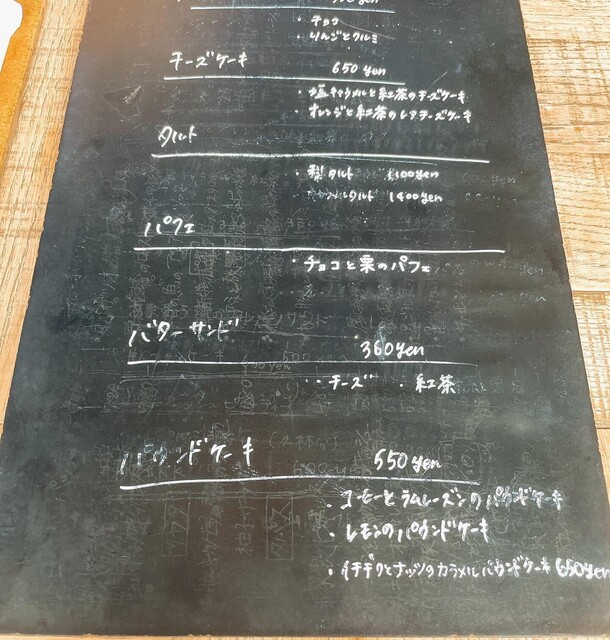 ・チョコ
・りんごとクルミ
チーズケーキ 650yen
・塩キャラメルと紅茶のチーズケーキ
・オレンジと紅茶のレアチーズケーキ
タルト
・梨タルト
タルト 1400yen
パフェ
・チョコと栗のパフェ
バターサンド 360yen
・チーズ ・紅茶
パウンドケーキ 550yen
・コーヒーとラムレーズンのパウンドケーキ
・レモンのパウンドケーキ
・イチヂクとナッツのカラメルパウンドケーキ 650yen